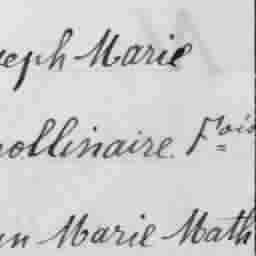 eph Marie
ollinaire. Fois
n Marie Math